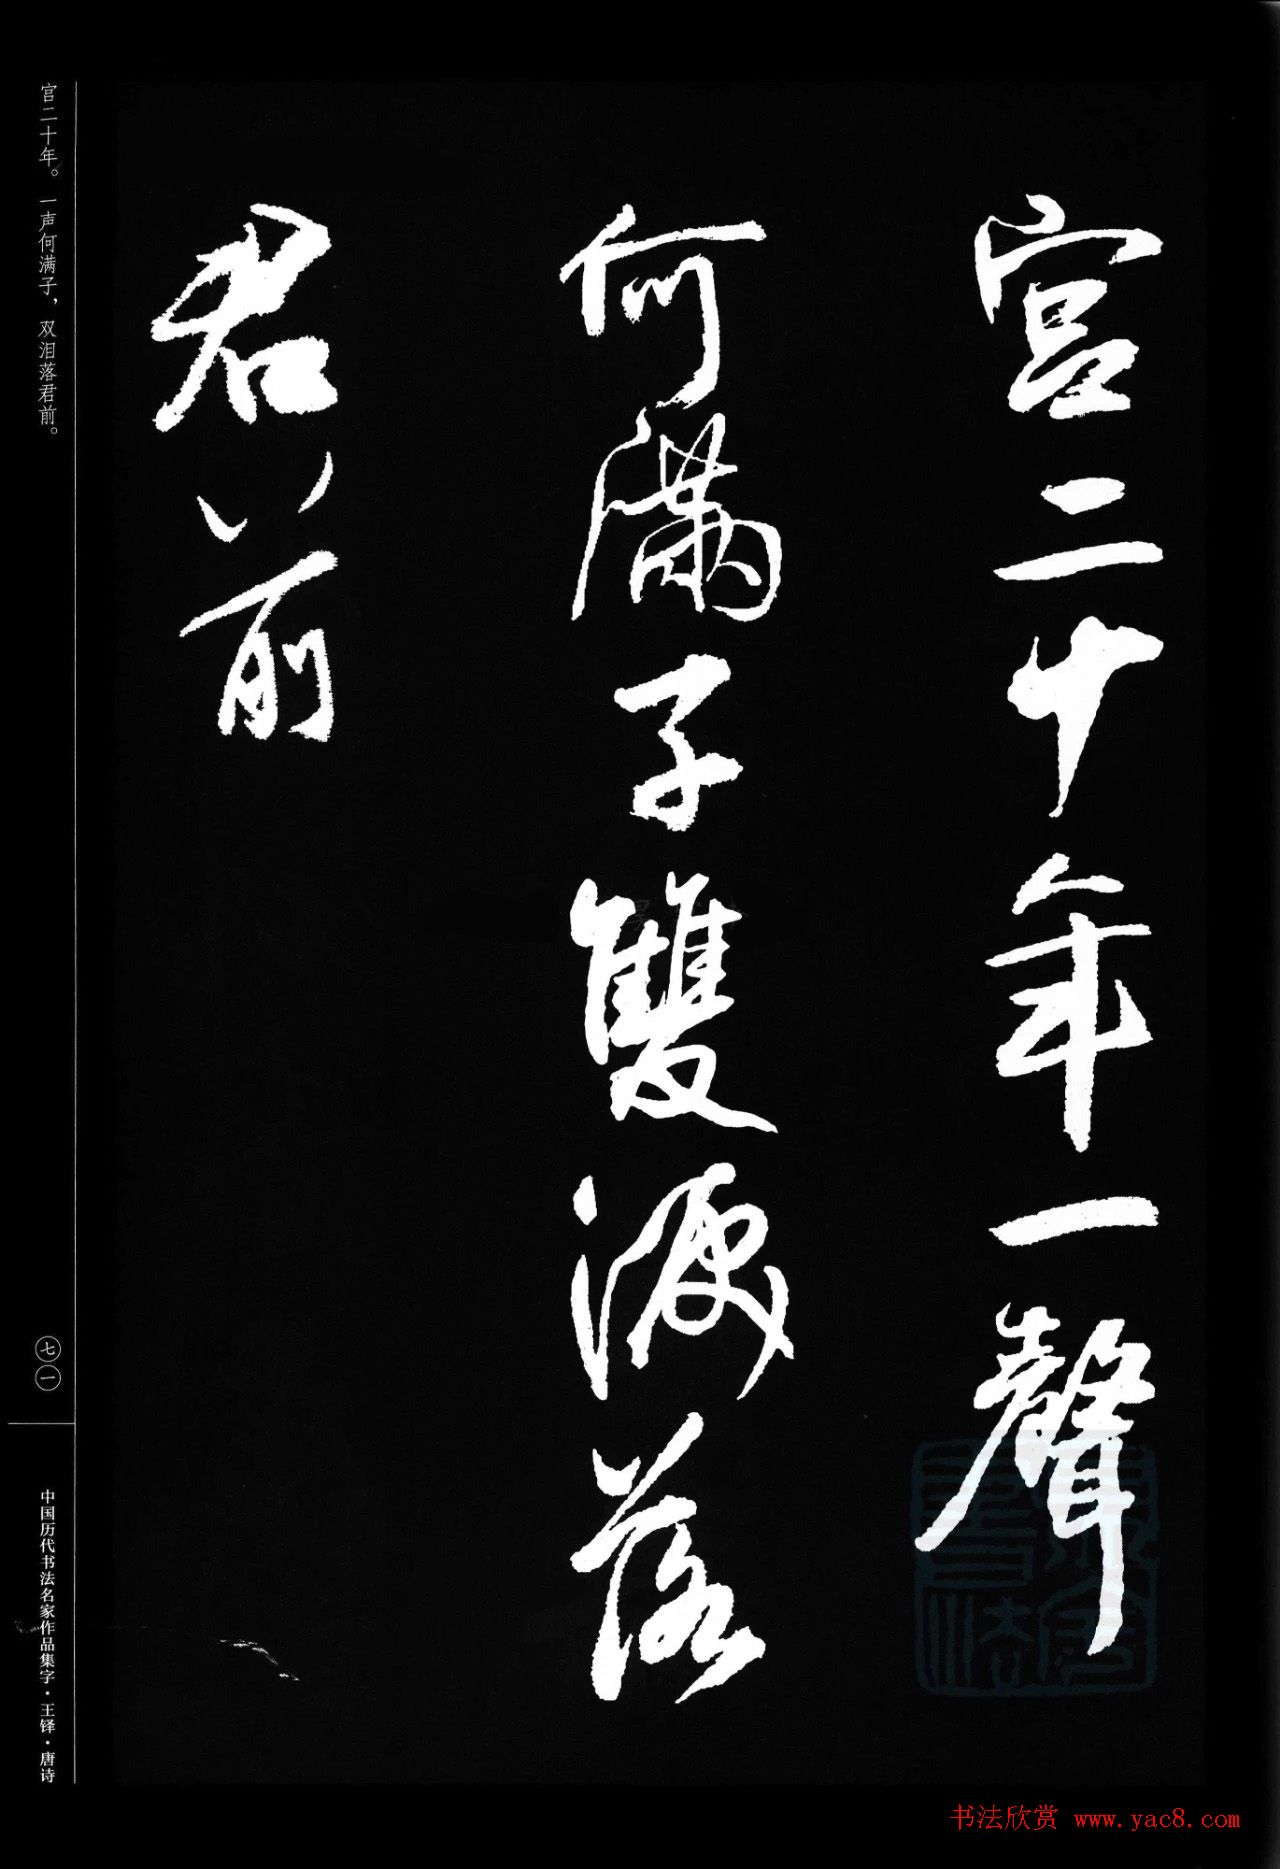 宫二十年一聲
何滿子雙淚落
君前
宫二十年。一声何满子，双泪落君前。
七一
中国历代书法名家作品集字·王铎·唐诗
书法欣赏 www.yac8.com